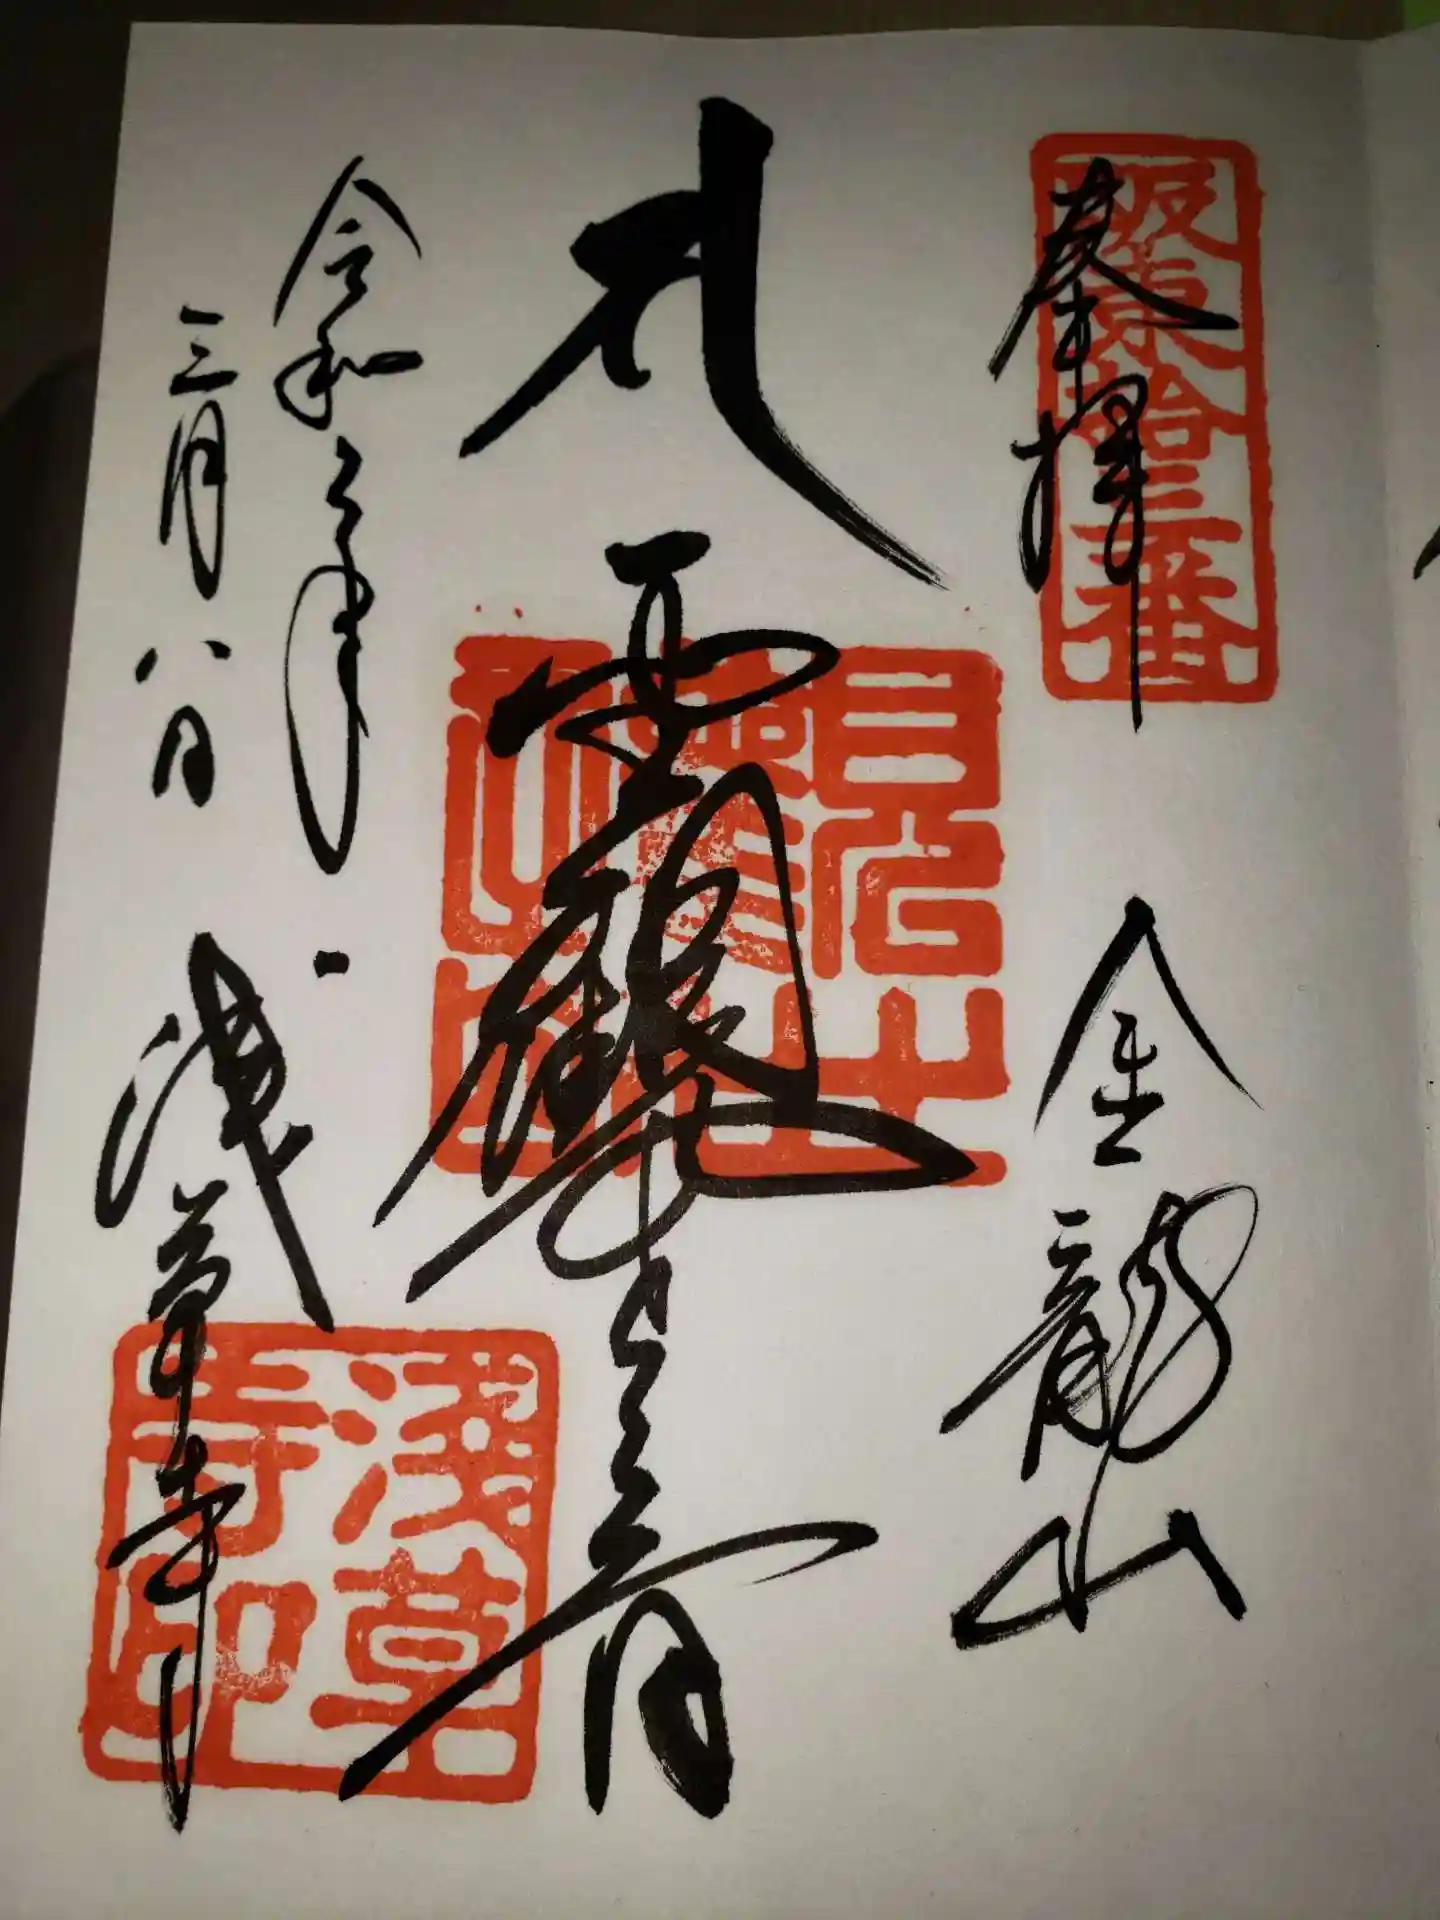 坂東拾三番
奉拝 金龍山
聖観世音
令和 年
三月八日 浅草寺
浅草寺印